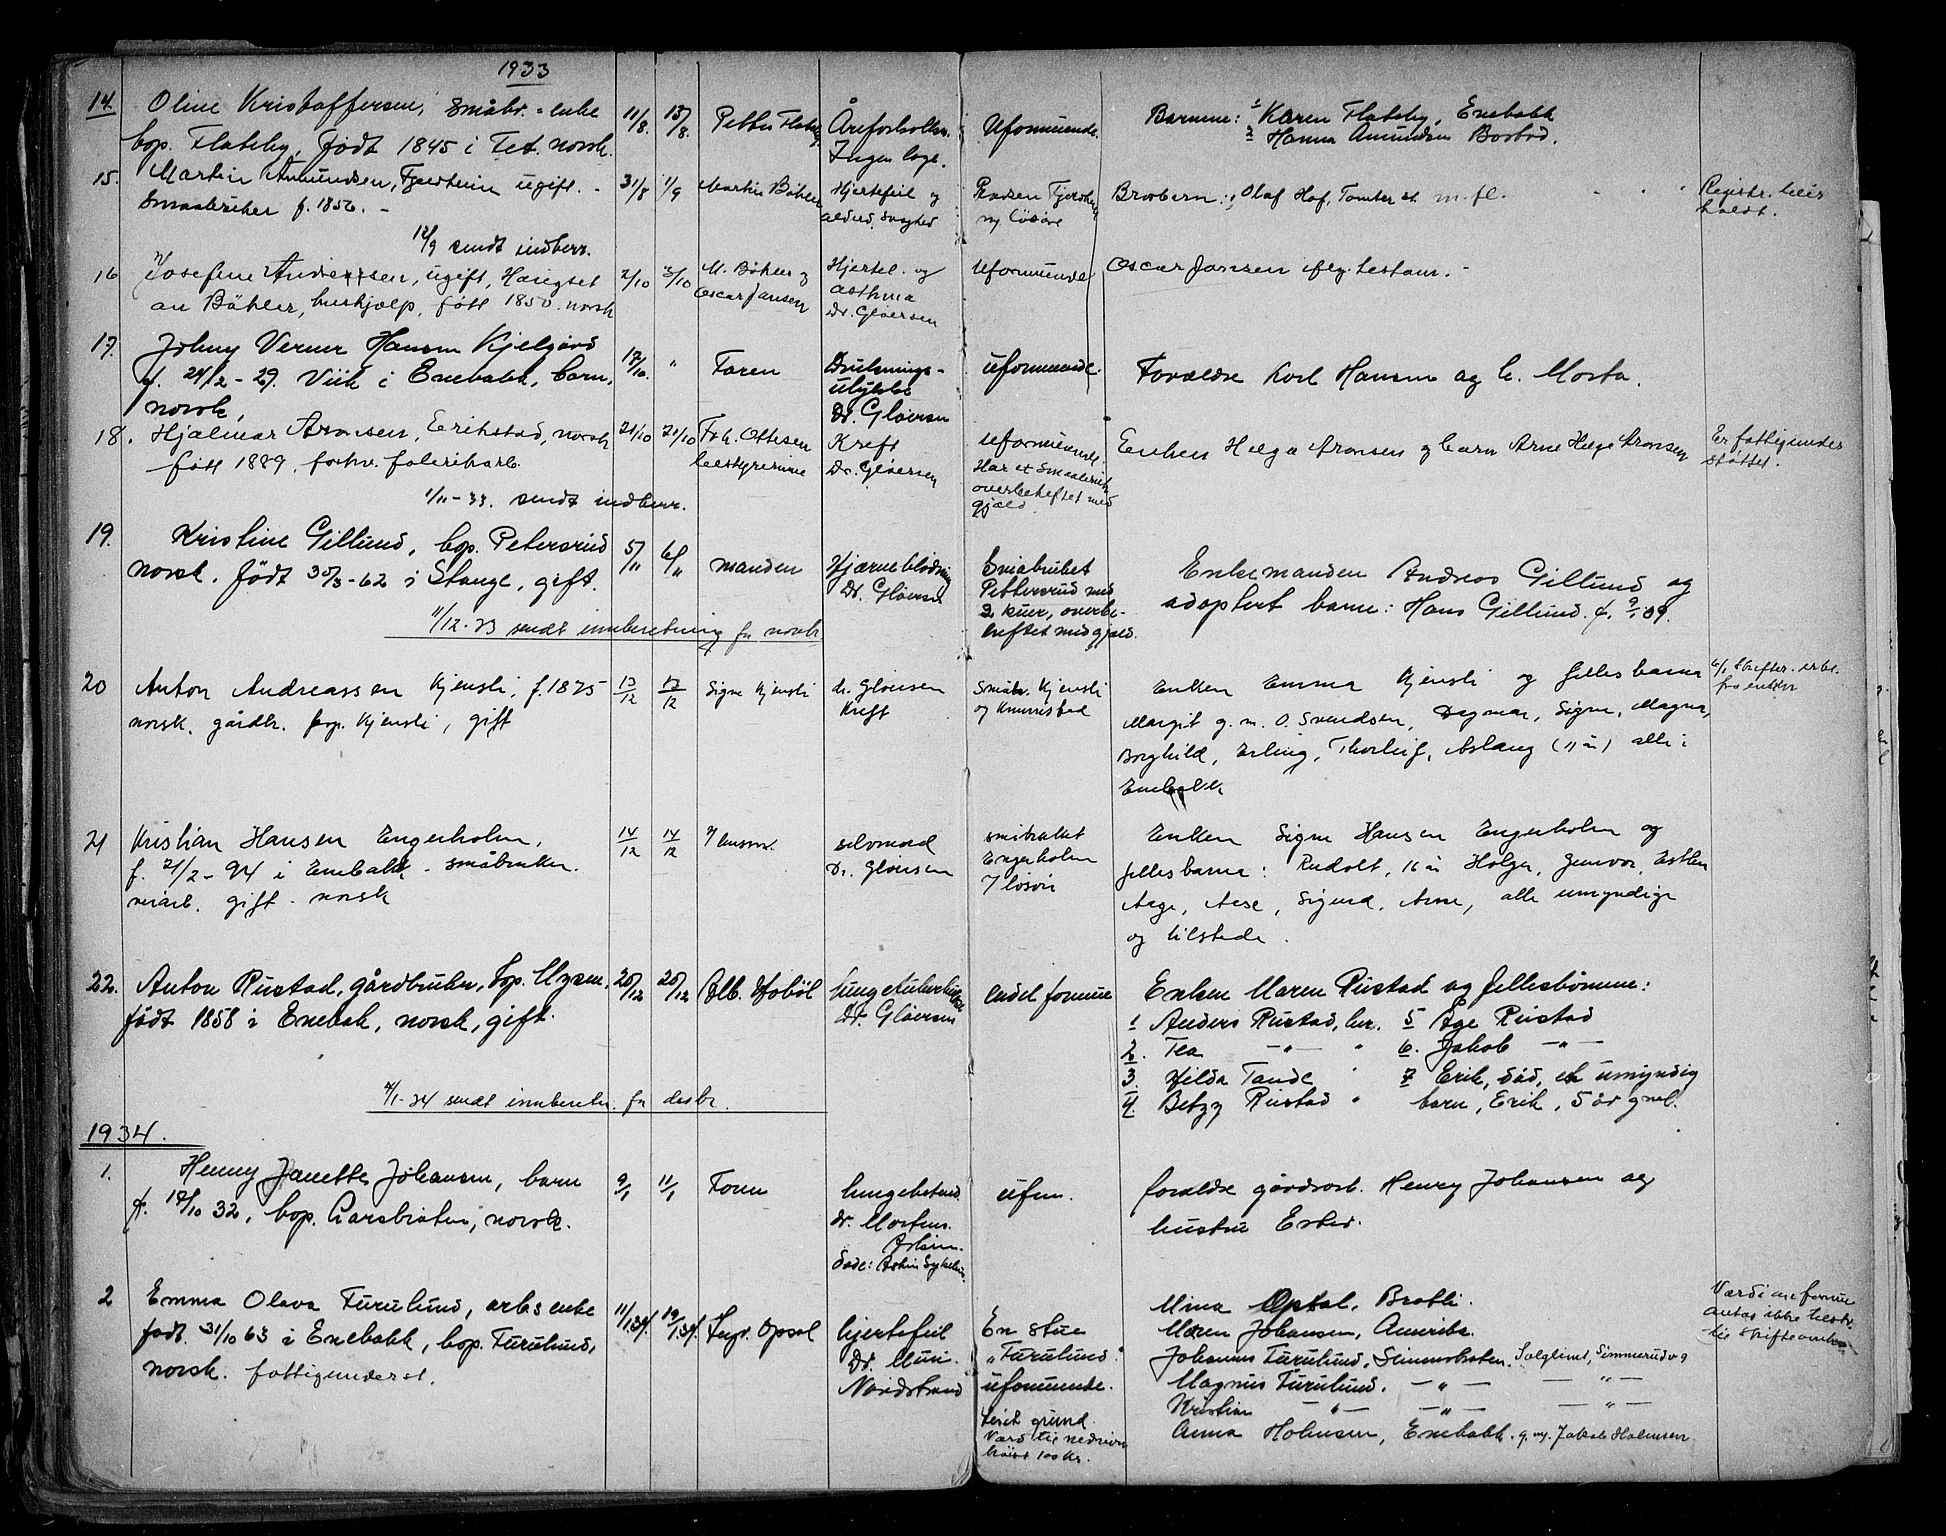 1933
14. Oline Kristoffersen, småbr.-enke 11/8. 13/8. Petter Flateby Åreforkalkn. Uformuende. Barnene: 1 Karen Flateby, Enebakk
bop. Flateby, født 1845 i Fet. norsk. Ingen læge. 2 Hanna Amundsen Bostad.
15. Martin Amundsen, Fjeldheim ugift. - 31/8 1/9 Martin Bøhler Hjertefeil og Brorbarn: Olaf Hof, Tomter st. m. fl. Registr.
Smaabruker f. 1856. - alderd. svaghed ny løsøre holdt.
12/9 sendt indberr.
16 Josefine Andersen, ugift, 2/10 3/10 M. Bøhler og Hjertel. og Uformuende Oscar Jansen iflg. testam. -
av Bøhler, hushjælp, født 1850. norsk Oscar Jansen asthma
Dr. Gløersen
17. Johny Verner Hansen Kjelgård 17/10. " Faren Druknings- uformuende. Forældre Karl Hansen og h. Marta.
f. 24/2-29. Viik i Enebakk, barn, ulykke
norsk, Dr. Gløersen
18. Hjalmar Aronsen, Erikstad, norsk 21/10 21/10 Frk. Ottesen Kreft uformuende. Enken Helga Aronsen og barn Arne Helge Aronsen Er fattigunder
født 1889, forhv. fabrikarb. bestyrerinne Dr. Gløersen Har et smaabruk støttet.
overbeheftet med
gjæld.
1/11-33. sendt indberr.
19. Kristine Gillund, bop. Petersrud 5/11 6/11 manden Hjerneblødning Småbruket Enkemanden Andreas Gillund og
norsk. født 30/3-62 i Stange, gift. Dr. Gløersen Pettersrud med adoptert barn: Hans Gillund. f. 9/1 09.
2 kuer, overbe-
heftet med gjæld.
11/12-33 sendt innberetning for novbr.
20 Anton Andreassen Kjensli, f. 1875 13/12 13/12 Signe Kjensli dr. Gløersen Småbr. Kjensli Enken Emma Kjensli og fellesbarna
norsk. gårdbr. bop. Kjensli, gift Kreft og Margit g. m. O. Svendsen, Dagmar, Signe, Magna,
Borghild, Erling, Thorleif, Aslaug (11 år) alle i
Enebakk
fra enken
21 Kristian Hansen Engerholm, 14/12 14/12 selvmord småbruket Enken Signe Hansen Engerholm og
f. 21/2-94 i Enebakk - småbruker. Dr. Gløersen Engerholm fellesbarna: Rudolf, 16 år Holger, Gunvor, Esther
veiarb. gift - norsk løsøre Aage, Aase, Sigurd, Arne, alle umyndige
og tilstede.
22. Anton Rustad, gårdbruker, bop. Mysen, 20/12 20/12 Alb. Hobøl lungetuberkulose endel formue Enken Maren Rustad og fellesbarnene:
født 1858 i Enebak, norsk, gift. Dr. Gløersen 1 Anders Rustad, her. 5 Åge Rustad
2. Tea -"- " 6. Jakob -"-
3. Hilda Tande " 7 Erik, død, et umyndig
4. Betzy Rustad " barn, Erik, 5 år gml.
4/1-34 sendt innberetn. for desbr.
1934.
1. Henny Janette Johansen, barn 9/1 11/1 Faren lungebetend. ufm. foreldre gårdsarb. Henry Johansen og
f. 14/10 32, bop. norsk. dr. Mortens. hustru Ester.
Askim.
Døde: Askim Sykehus.
2 Emma Olava Furulund, arb.s enke 11/1 34. 19/1 34. Ingv. Opsal hjertefeil En stue Mina Opsal, Bratli.
født. 31/10 63 i Enebakk, bop. Furulund, Dr. "Furulund." Maren Johansen, Amerika.
norsk. fattigunderst. Nordstrand uformuende. Johannes Furulund, Solglimt, Simmerud
Magnus Furulund. -"- -"-
Kristian -"- -"- -"-
Anna Holmsen, Enebakk. g. m. Jakob Holmsen
grund.
Værd til nedrivn.
høist 100 kr.
Værdi av formue
antas ikke
til skifteomk.